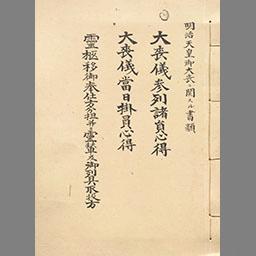 明治天皇御大喪ニ関スル書類
大喪儀参列諸員心得
大喪儀當日掛員心得
霊柩移御奉仕分担并霊輦及御列具取扱方